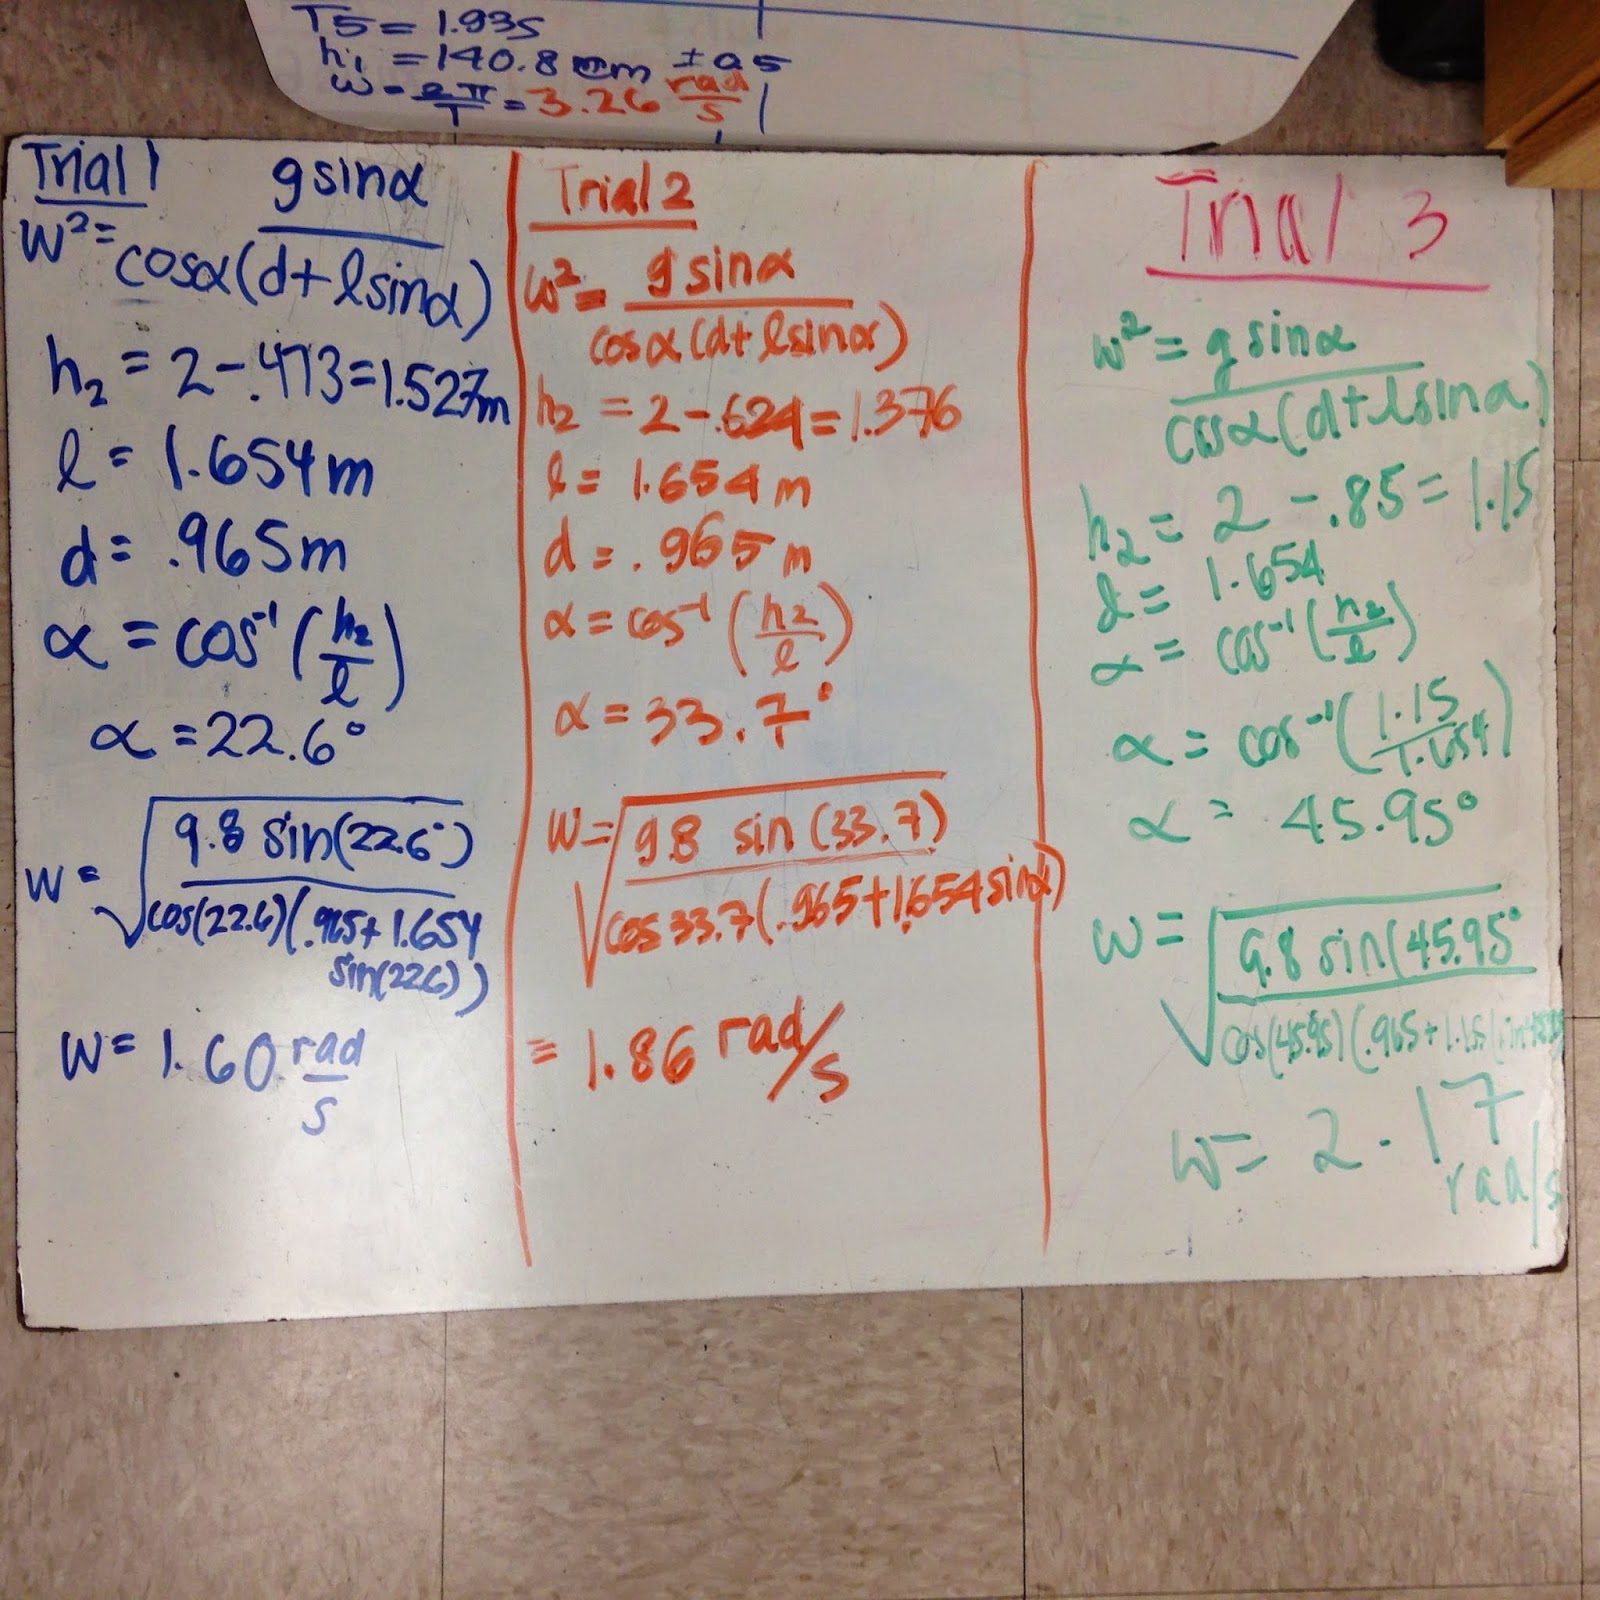 T5 = 1.93s
h₁ = 140.8 cm ± 0.5
w = 2π/T = 3.26 rad/s
Trial 1
w² = g sinα / cosα(d+lsinα)
h₂ = 2 - .473 = 1.527m
l = 1.654m
d = .965m
α = cos⁻¹(h₂/l)
α = 22.6°
w = √(9.8 sin(22.6°) / cos(22.6)(.965+1.654
sin(22.6))
w = 1.60 rad/s
Trial 2
w² = g sinα / cosα(d+lsinα)
h₂ = 2 - .624 = 1.376
l = 1.654 m
d = .965 m
α = cos⁻¹(h₂/l)
α = 33.7°
w = √(9.8 sin(33.7) / cos33.7(.965+1.654sinα)
= 1.86 rad/s
Trial 3
w² = g sinα / cosα(d+lsinα)
h₂ = 2 - .85 = 1.15
l = 1.654
α = cos⁻¹(h₂/l)
α = cos⁻¹(1.15/1.654)
α = 45.95°
w = √(9.8 sin(45.95° / cos(45.95)(.965+1.15(sin
w = 2.17
rad/s